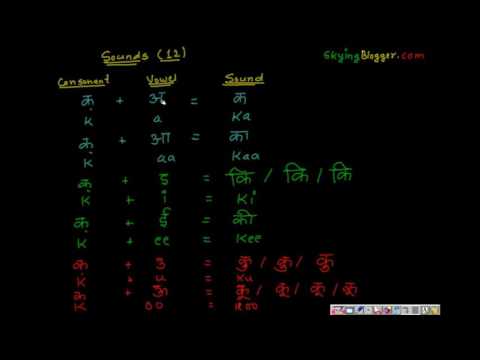 Sounds (12)
SkyingBlogger.com
Consonant Vowel Sound
क् + अ = क
K a Ka
क् + आ = का
K aa Kaa
क् + इ = कि / कि / कि
K + i = Ki
क् + ई = की
K + ee = Kee
क + उ = कु / कु / कु
K + u = Ku
क + ऊ = कू / कू / कू / कू
K oo = Koo